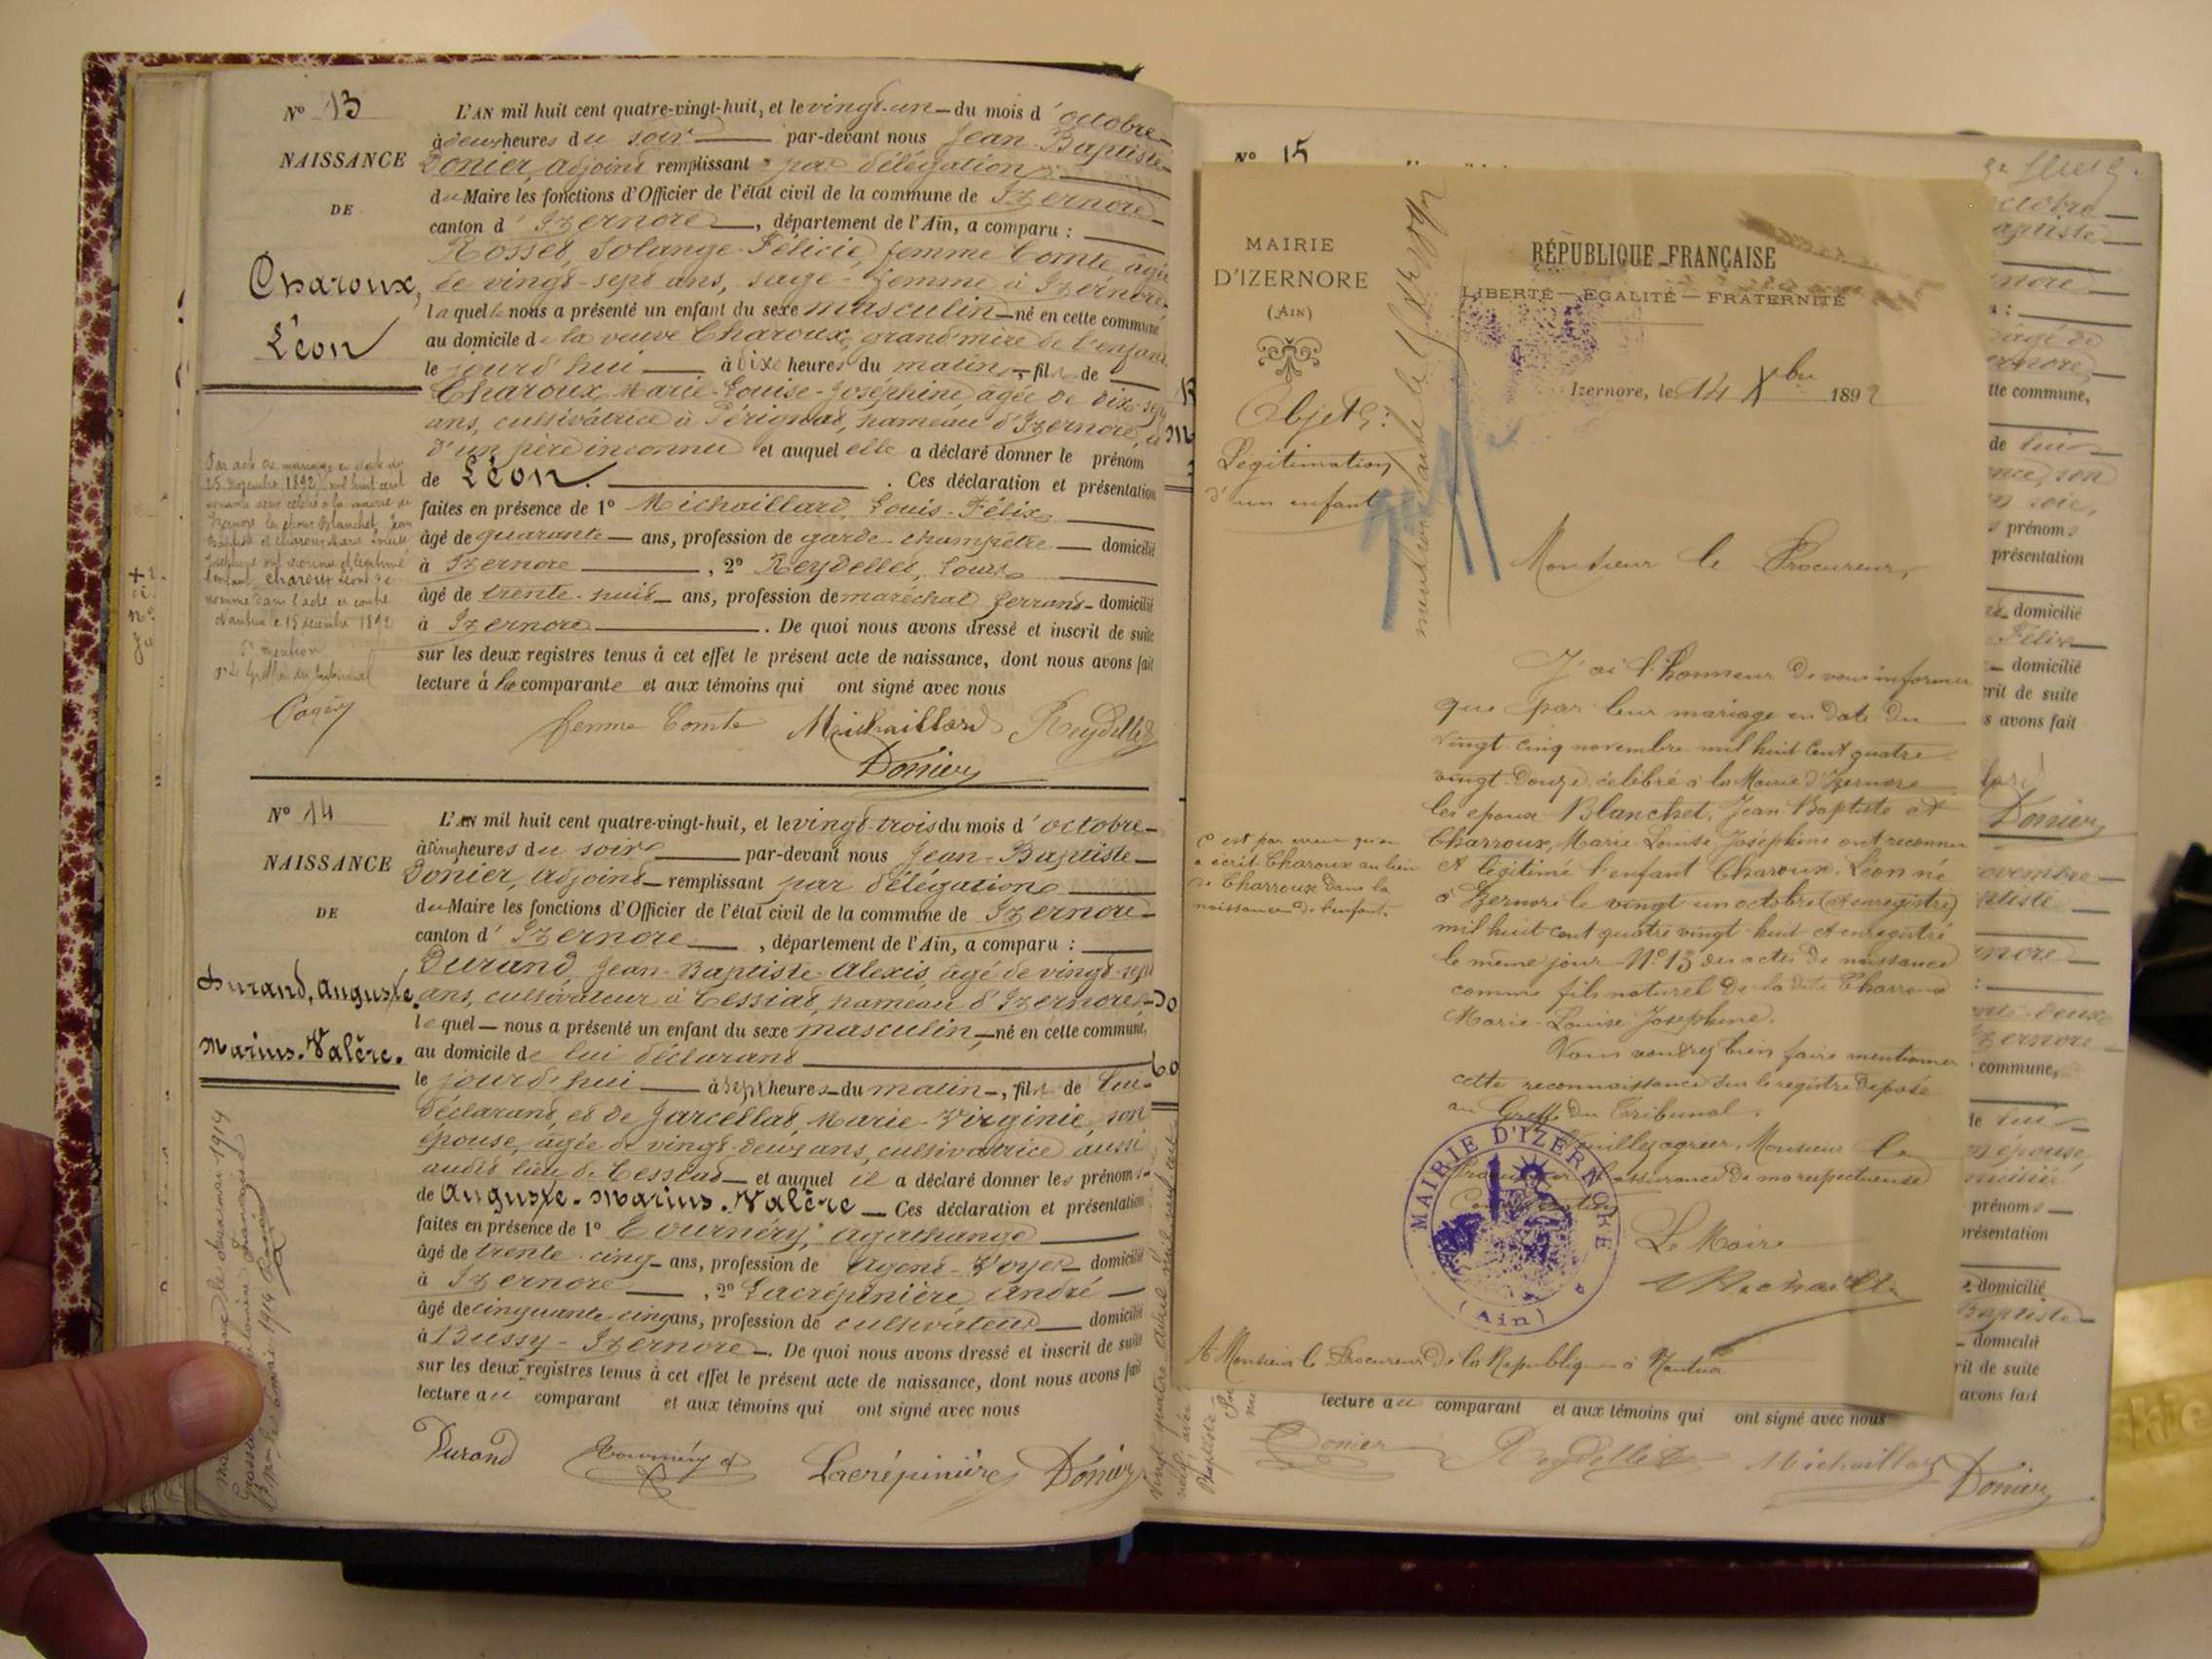 N° 13
NAISSANCE
DE
Charoux,
Léon
L'AN mil huit cent quatre-vingt-huit, et le vingt-un du mois d'octobre
à deux heures du soir par-devant nous Jean Baptiste
Donier, adjoint remplissant par délégation
du Maire les fonctions d'Officier de l'état civil de la commune de Izernore
canton d'Izernore, département de l'Ain, a comparu :
Rosset, Solange Félicie, femme Comte, âgée
de vingt-sept ans, sage-femme à Izernore
laquelle nous a présenté un enfant du sexe masculin né en cette commune
au domicile de la veuve Charoux, grand'mère de l'enfant
le jourd'hui à dix heures du matin, fils de
Charoux, Marie-Louise-Joséphine, âgée de dix-sept
ans, cultivatrice à Pérignat, hameau d'Izernore, et
d'un père inconnu et auquel elle a déclaré donner le prénom
de Léon. Ces déclaration et présentation
faites en présence de 1° Michaillard, Louis-Félix
âgé de quarante ans, profession de garde-champêtre domicilié
à Izernore, 2° Reydellet, Louis
âgé de trente-huit ans, profession de maréchal ferrant domicilié
à Izernore. De quoi nous avons dressé et inscrit de suite
sur les deux registres tenus à cet effet le présent acte de naissance, dont nous avons fait
lecture à la comparante et aux témoins qui ont signé avec nous
femme Comte Michaillard Reydellet
Donier
Par acte de mariage en date du
25 novembre 1892, mil huit cent
célébré à la mairie de
Izernore les époux Blanchet, Jean
Baptiste et Charoux Marie Louise
Joséphine ont reconnu et légitimé
l'enfant Charoux Léon
nommé dans l'acte ci contre
Nantua le 15 décembre 1892
Pr mention
Le Greffier du Tribunal
N° 14
NAISSANCE
DE
Durand, Auguste
Marius-Valère.
L'AN mil huit cent quatre-vingt-huit, et le vingt-trois du mois d'octobre
à cinq heures du soir par-devant nous Jean-Baptiste
Donier, adjoint remplissant par délégation
du Maire les fonctions d'Officier de l'état civil de la commune de Izernore
canton d'Izernore, département de l'Ain, a comparu :
Durand, Jean-Baptiste Alexis, âgé de vingt-sept
ans, cultivateur à Cessiat, hameau d'Izernore,
lequel nous a présenté un enfant du sexe masculin, né en cette commune,
au domicile de lui déclarant
le jourd'hui à sept heures du matin, fils de lui
déclarant, et de Jarcellat, Marie-Virginie, son
épouse, âgée de vingt-deux ans, cultivatrice aussi
audit lieu de Cessiat et auquel il a déclaré donner les prénoms
de Auguste-Marius-Valère Ces déclaration et présentation
faites en présence de 1° Tournéry, Agathange
âgé de trente-cinq ans, profession de Agent-Voyer domicilié
à Izernore, 2° Lacrépinière André
âgé de cinquante cinq ans, profession de cultivateur domicilié
à Bussy-Izernore. De quoi nous avons dressé et inscrit de suite
sur les deux registres tenus à cet effet le présent acte de naissance, dont nous avons fait
lecture au comparant et aux témoins qui ont signé avec nous
Durand Tournéry Lacrépinière Donier
N° 15
MAIRIE
D'IZERNORE
(AIN)
Objet :
Légitimation
d'un enfant
RÉPUBLIQUE FRANÇAISE
LIBERTÉ — EGALITÉ — FRATERNITÉ
Izernore, le 14 Xbre 1892
Monsieur le Procureur,
J'ai l'honneur de vous informer
que par leur mariage en date du
vingt cinq novembre mil huit cent quatre
vingt douze, célébré à la Mairie d'Izernore
les epoux Blanchet, Jean Baptiste et
Charroux, Marie-Louise Joséphine ont reconnu
et légitimé l'enfant Charoux, Léon né
à Izernore le vingt un octobre (et enregistré)
mil huit cent quatre vingt huit et enregistré
le même jour N° 13 des actes de naissance
comme fils naturel de la dite Charroux
Marie-Louise Joséphine.
Vous voudrez bien faire mentionner
cette reconnaissance sur le registre déposé
au Greffe du Tribunal.
Veuillez agréer, Monsieur le
Procureur l'assurance de ma respectueuse
Considération
Le Maire
C'est par erreur qu'on
a écrit Charoux au lieu
de Charroux dans la
naissance de l'enfant.
MAIRIE D'IZERNORE
(Ain)
A Monsieur le Procureur de la République à Nantua
lecture au comparant et aux témoins qui ont signé avec nous
Donier Reydellet Michaillard Donier
octobre
tte commune,
prénoms
présentation
domicilié
Félix
domicilié
rit de suite
s avons fait
Donier
commune,
prénoms
présentation
domicilié
Baptiste
domicilié
rit de suite
avons fait